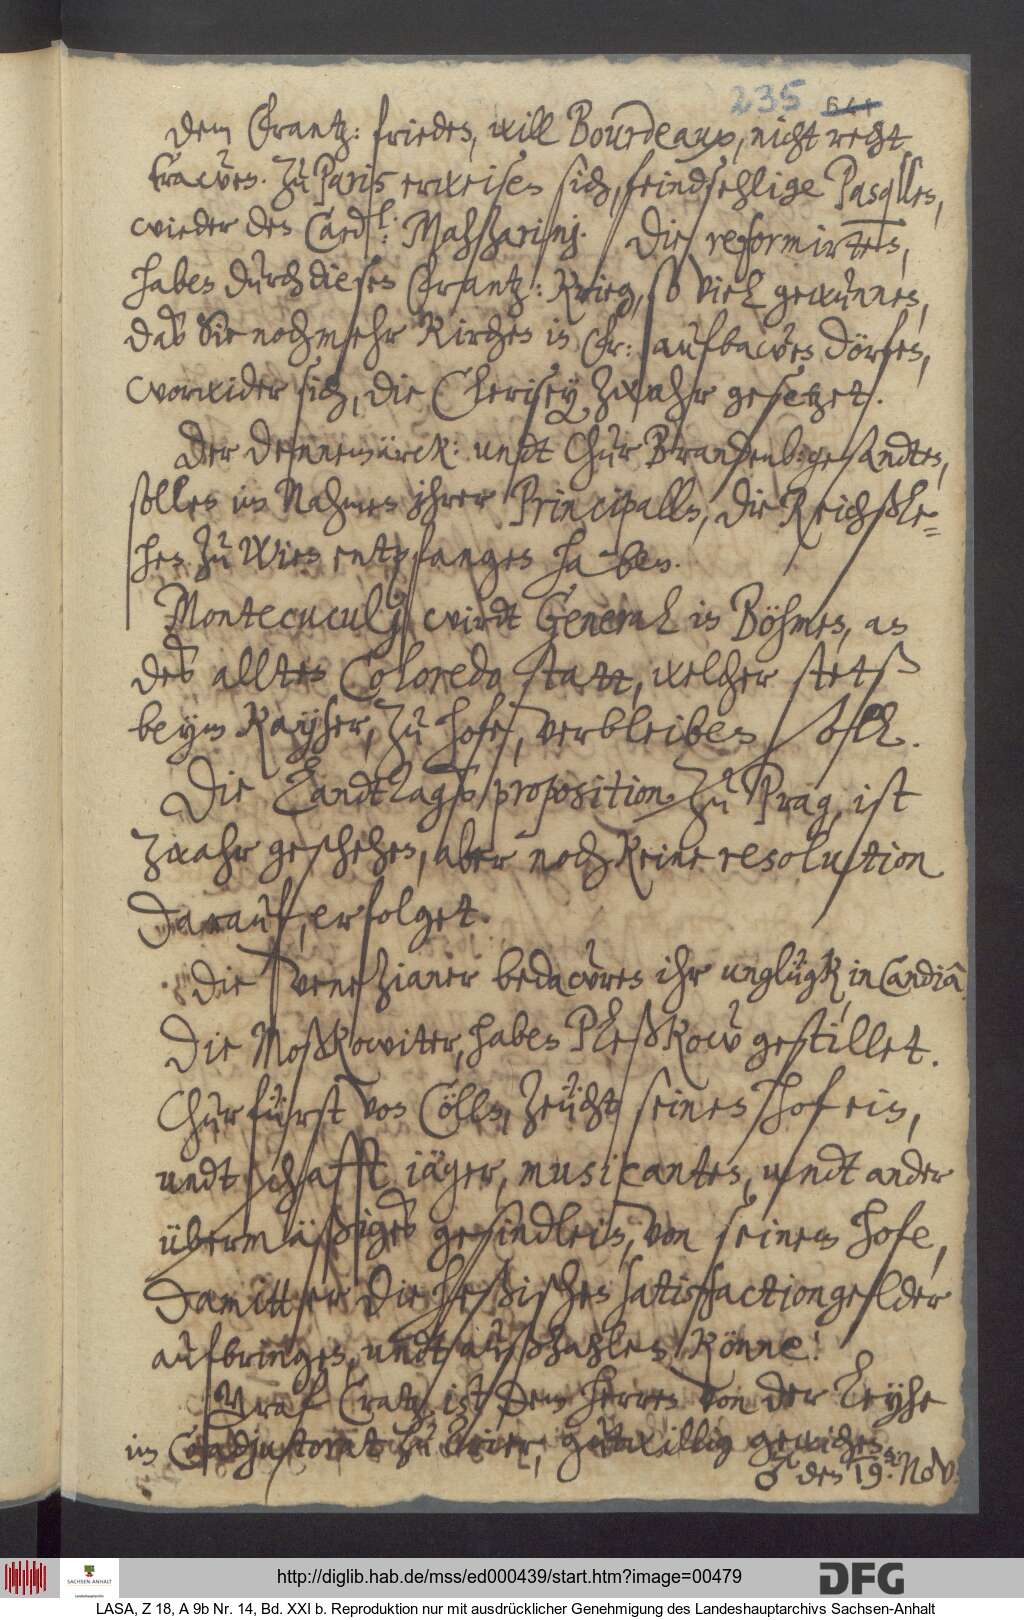 235 644
dem Frantz: frieden, will Bourdeaux, nicht recht
trawen. Zu Paris erweisen sich, feindsehlige Pasqlles,
wieder den Card.l: Mahsharinj. Die reformirten,
haben durch diesen Frantz: Krieg, so viel gewunnen,
das Sie noch mehr Kirchen in Fr: aufbawen dörfen,
worwider sich, die Clerisey zwahr gesetzet.
Der Dennemärck: undt Chur Brandenb: gesandten,
sollen im Nahmen ihrer Principalln, die Reichßle-
hen zu Wien entpfangen haben.
Montecuculj wirdt General in Böhmen, an
des allten Coloredo statt, welcher stetß
beym Kayser, zu hofe, verbleiben soll.
Die Landtags proposition zu Prag, ist
zwahr geschehen, aber noch keine resolution
darauf, erfolget.
Die Venezianer bedawren ihr unglügk, in Candia.
Die Moßkowiter, haben Pleßkow gestillet.
Churfürst von Cölln, zeücht seinen hof ein,
undt schafft jäger, musicanten, undt ander
übermäßiges gesindlein, von seinem hofe,
damitt er die heßischen satisfactiongelder
aufbringen, undt außzahlen könne!
Graf Cratz, ist dem herren von der Leyhe
im Coadjutorat zu Trier, guttwillig gewichen
♂ den 19. Nov:
http://diglib.hab.de/mss/ed000439/start.htm?image=00479
SACHSEN-ANHALT
DFG
LASA, Z 18, A 9b Nr. 14, Bd. XXI b. Reproduktion nur mit ausdrücklicher Genehmigung des Landeshauptarchivs Sachsen-Anhalt